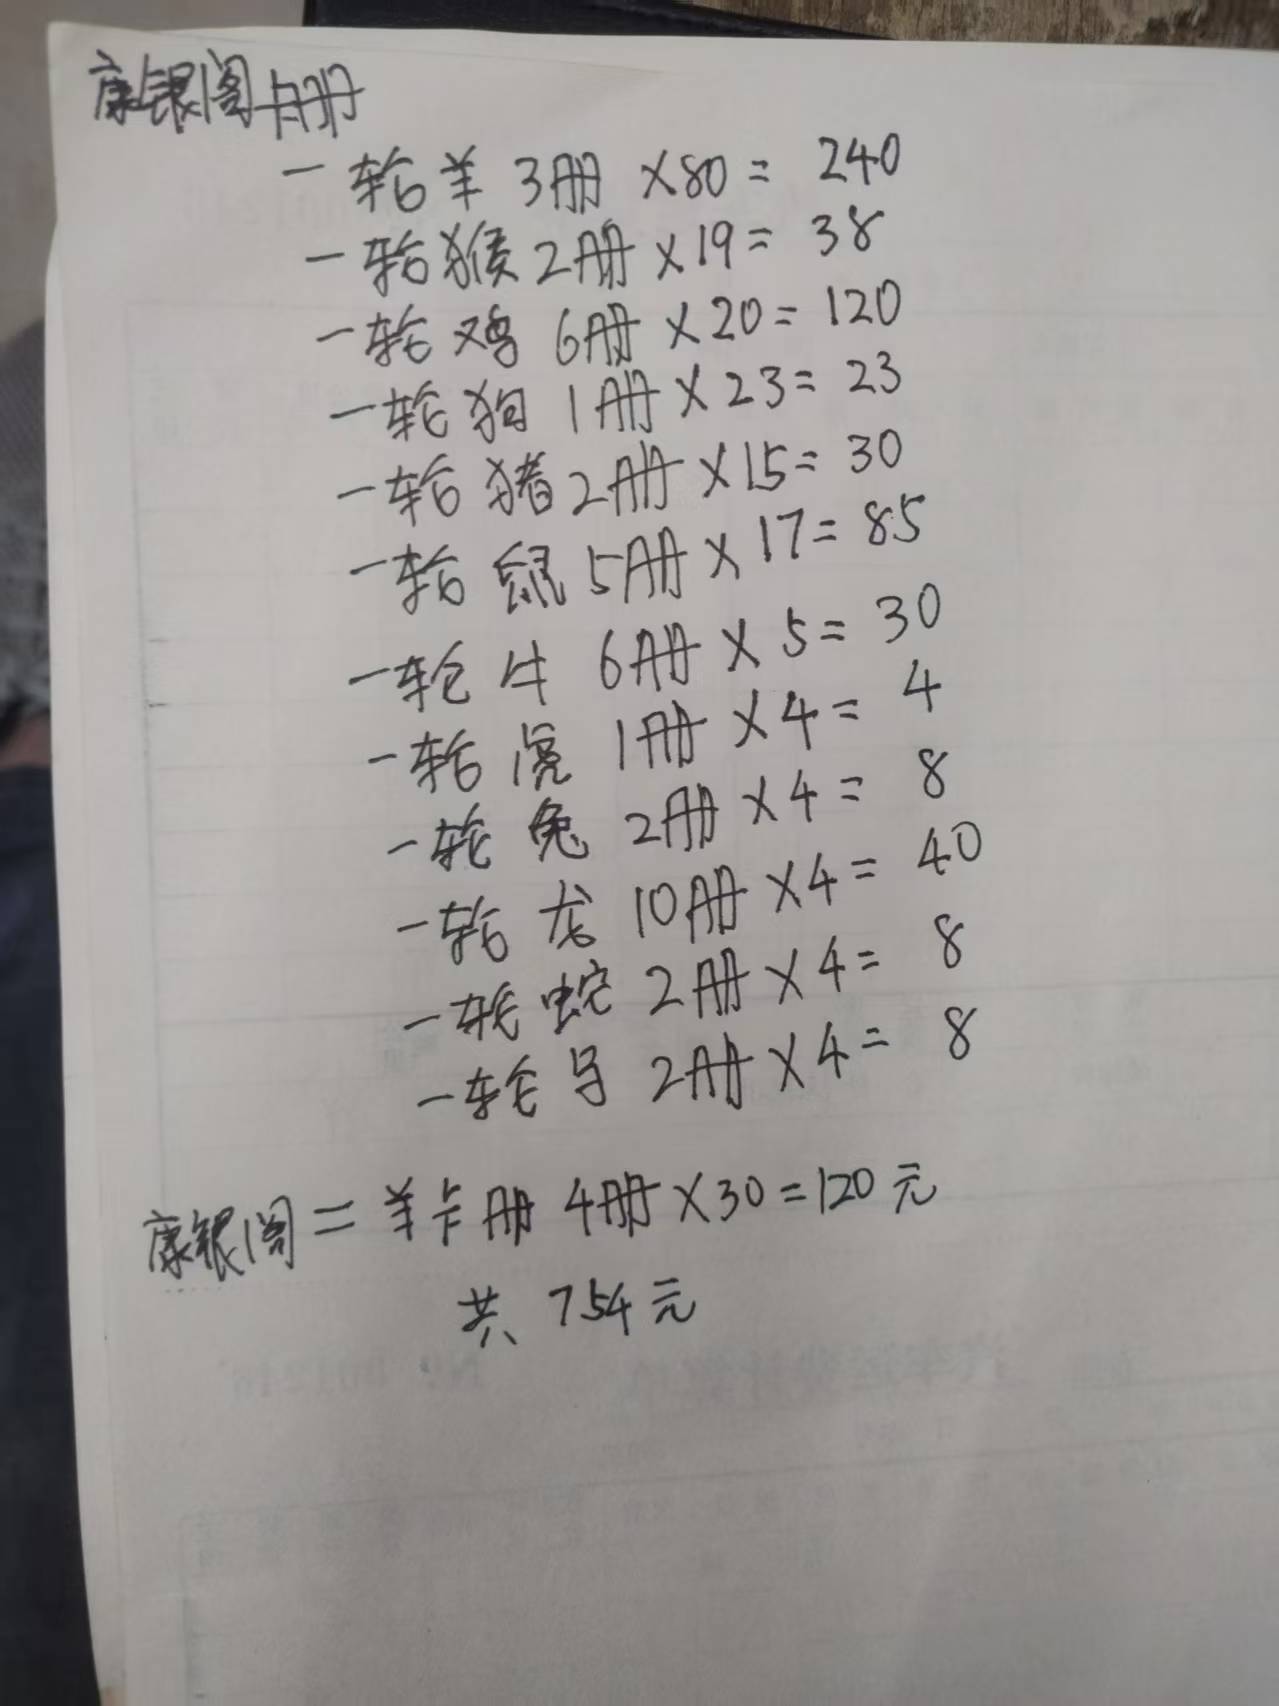 康银阁卡册
一轮羊 3册 ×80= 240
一轮猴 2册 ×19= 38
一轮鸡 6册 ×20= 120
一轮狗 1册 ×23= 23
一轮猪 2册 ×15= 30
一轮鼠 5册 ×17= 85
一轮牛 6册 ×5= 30
一轮虎 1册 ×4= 4
一轮兔 2册 ×4= 8
一轮龙 10册 ×4= 40
一轮蛇 2册 ×4= 8
一轮马 2册 ×4= 8
康银阁二羊卡册 4册×30=120元
共 754元